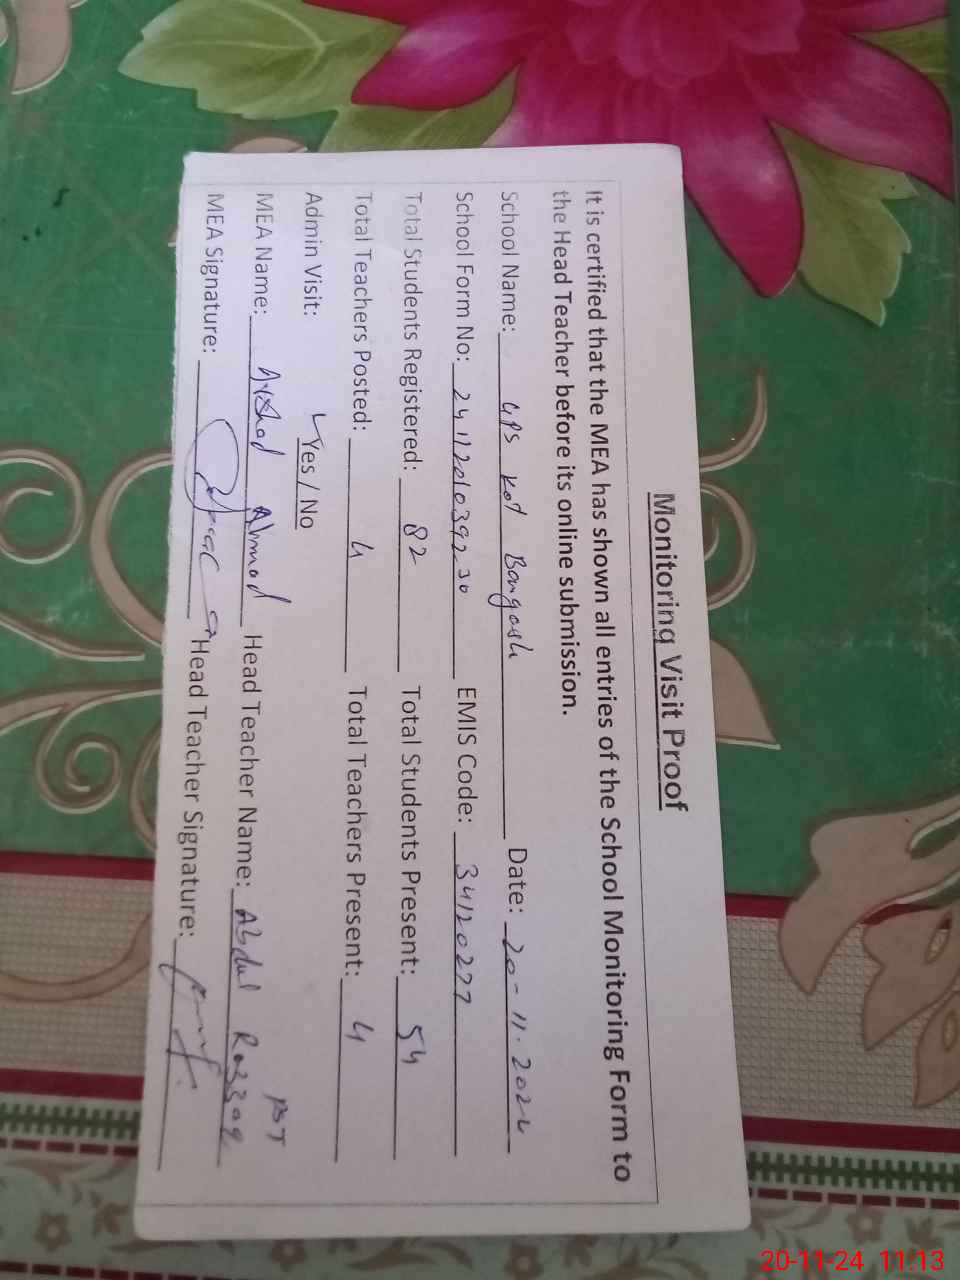 Monitoring Visit Proof
It is certified that the MEA has shown all entries of the School Monitoring Form to
the Head Teacher before its online submission.
School Name: GPS Kot Bangash Date: 20-11-2024
School Form No: 2411201039230 EMIS Code: 34120277
Total Students Registered: 82 Total Students Present: 54
Total Teachers Posted: 4 Total Teachers Present: 4
Admin Visit: Yes / No
PST
MEA Name: Arshad Ahmad Head Teacher Name: Abdul Razzaq
MEA Signature: Head Teacher Signature:
20-11-24 11:13